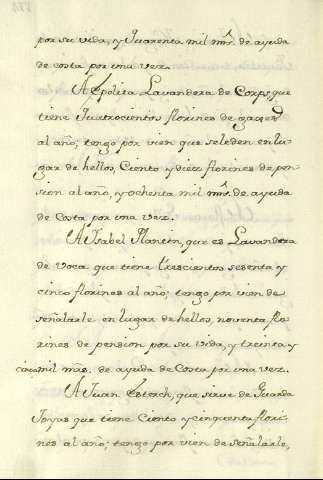 por su vida, y Quarenta mil mrs. de ayuda
de costa por una vez.
A Epolita Lavandera de Corps, que
tiene Quatrocientos florines de gages
al año; tengo por vien que seleden en lu-
gar de hellos Ciento y diez florines de pen-
sion al año, y ochenta mil mrs. de ayuda
de Costa por una vez.
A Ysabel Plantin, que es Lavandera
de voca que tiene trescientos sesenta y
cinco florines al año; tengo por vien de
señalarle en lugar de hellos, noventa flo-
rines de pension por su vida, y treinta y
cinco mil mrs. de ayuda de Costa por una vez.
A Juan Esterch, que sirve de Guarda
Joyas que tiene Ciento y cinquenta flori-
nes al año; tengo por vien de señalarle,